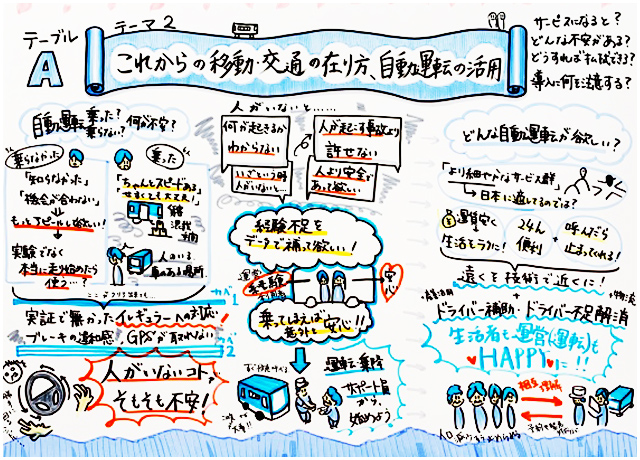 テーブル
A
テーマ2
これからの移動・交通の在り方、自動運転の活用
サービスになると?
どんな不安がある?
導入に何を注意する?
自動運転乗った?
乗らない?
何が不安?
乗らなかった
「知らなかった」
「機会が合わない」
もっとアピールして欲しい!
実験でなく
本当に走り始めたら
使う…?
乗った
「ちゃんとスピードある」
人がいないと……
何が起きるか
わからない
人が起こす事故より
許せない
いざという時
人がいないと…
人より安全で
あって欲しい
経験不足を
データで補って欲しい!
運営
安心
乗ってしまえば
安心!!
実証で無かったイレギュラーへの対応
ブレーキの違和感
GPSが取れない
カベ1
カベ2
人がいないコト、
そもそも不安!
運転・乗降
サポート員
から、
始めよう
どんな自動運転が欲しい?
「より細やかなサービス群」
→日本に適してるのでは?
運賃安く
生活をラクに!
+
24h
便利
+
呼んだら
止まってくれる!
遠くを技術で近くに!
ドライバー補助・ドライバー不足解消
生活者も運営(運転)も
HAPPYに!!
相互理解